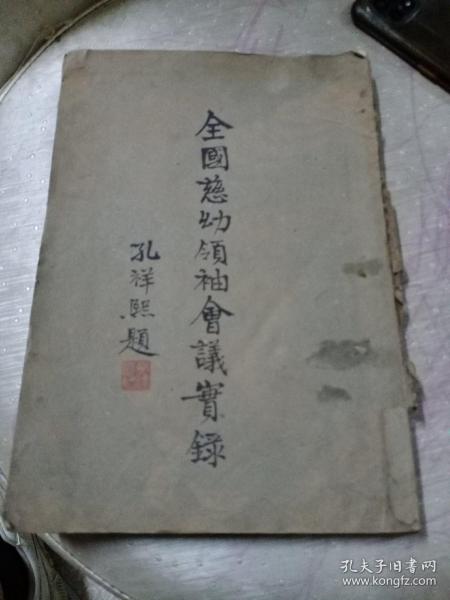 全國慈幼領袖會議實錄
孔祥熙題
孔夫子旧书网
www.kongfz.com